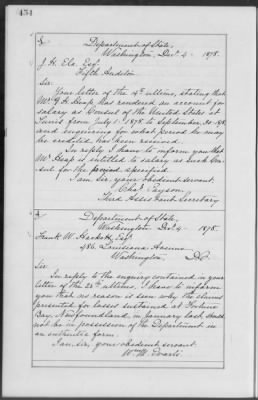 434
Department of State,
Washington, Dec. 4 - 1878.
J. H. Ela, Esq.
Fifth Auditor
Sir:
Your letter of the 4th ultimo, stating that
Mr. G. H. Heap has rendered an account for
salary as Consul of the United States at
Tunis from July 1st 1878 to September 30-1878,
and enquiring for what period he may
be credited, has been received.
In reply I have to inform you that
Mr. Heap is entitled to salary as such Con-
sul for the period specified.
I am, Sir, your obedient servant,
Chas. Payson.
Third Assistant Secretary
Department of State,
Washington, Dec. 4 - 1878.
Frank W. Hackett, Esq.
486, Louisiana Avenue
Washington, D.C.
Sir
In reply to the enquiry contained in your
letter of the 25th ultimo, I have to inform
you that no reason is seen why the claims
presented for losses sustained at Fortune
Bay, Newfoundland, in January last, should
not be in possession of the Department in
an authentic form.
I am, sir, your obedient servant,
Wm. M. Evarts.